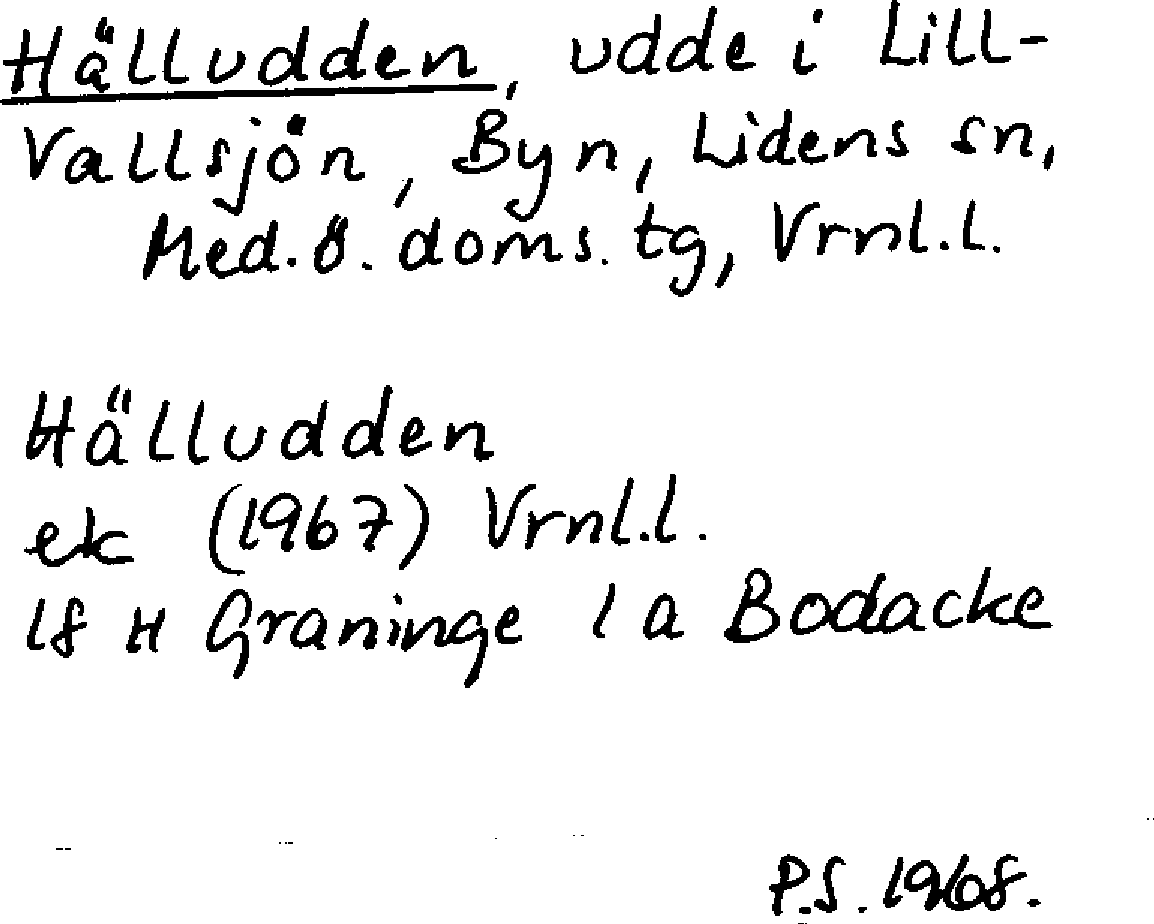 Hälludden, udde i Lill-
Vallsjön, Byn, Lidens sn,
Med. ö. doms. tg, Vrnl.l.
Hälludden
ek (1967) Vrnl.l.
18 H Graninge 1 a Bodacke
P.S. 1968.